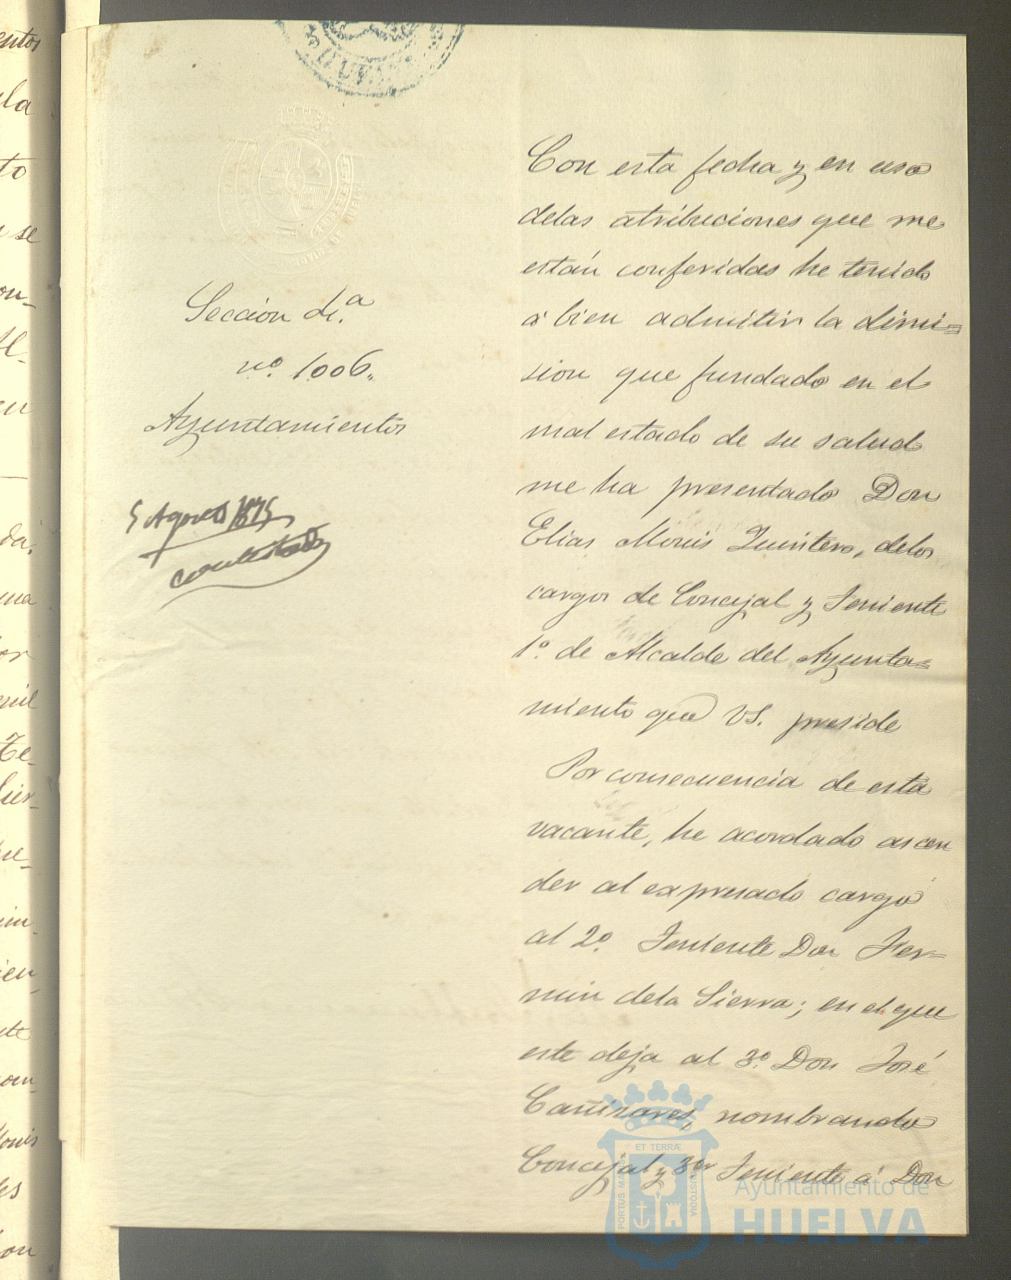 Sección 4.ª
nº. 1.006.
Ayuntamientos
5 Agosto 1875
contestado
Con esta fecha y en uso
delas atribuciones que me
están conferidas he tenido
á bien admitir la dimi=
sion que fundado en el
mal estado de su salud
me ha presentado Don
Elias Quintero, delos
cargos de Concejal y Teniente
1º. de Alcalde del Ayunta=
miento que VS. preside
Por consecuencia de esta
vacante, he acordado ascen
der al expresado cargo
al 2º. Teniente Don Fer=
min dela Sierra; en el que
este deja al 3º. Don José
Cañizares, nombrando
Concejal y 3er Teniente á Don
ET TERRÆ
PORTUS MARIS
CUSTODIA
Ayuntamiento de
HUELVA